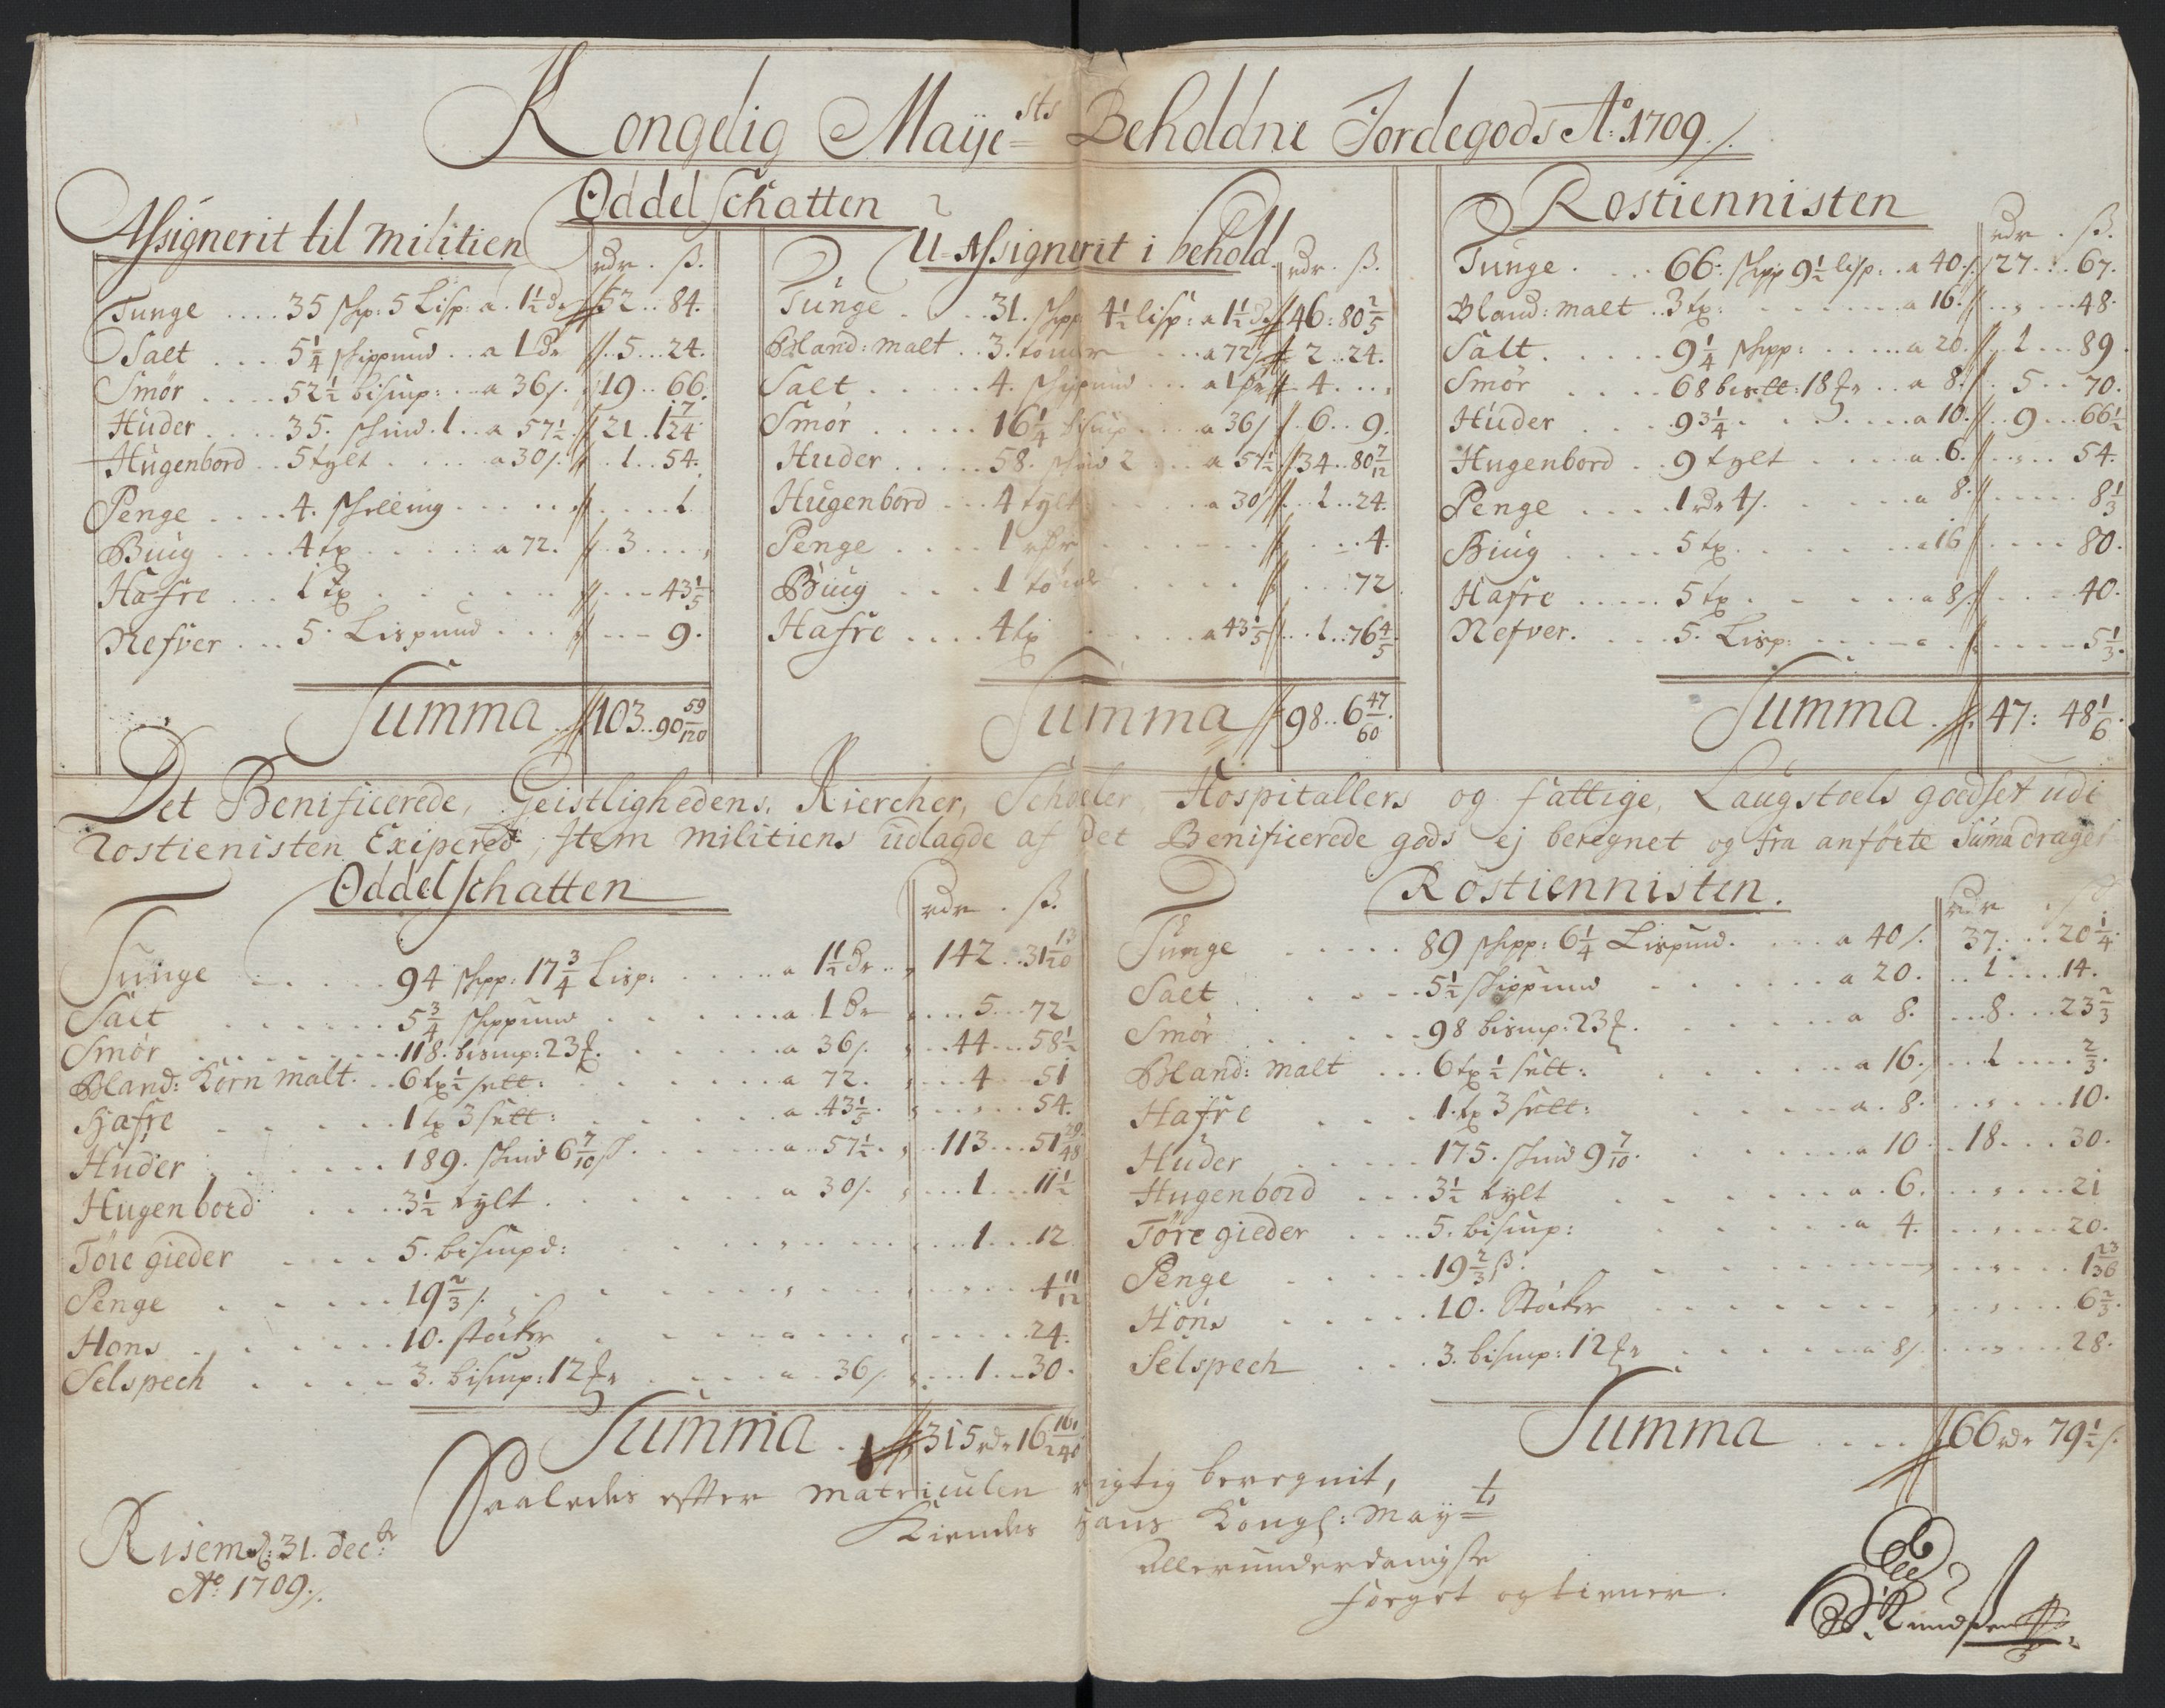 Kongelig Maije sts Beholdne Jordegods Ao: 1709 /.
Oddel schatten
Assignerit til militien
rdr . ß.
Tunge .... 35 schp: 5 Lisp: a 1½ dr 52 .. 84.
Salt ... 5¼ schippund .. a 1 dr 5 .. 24.
Smør .... 52½ bismp: .. a 36 /. 19 .. 66.
Huder .... 35. schind. 1 .. a 57½ 21 . 1 7/24
Hugenbord .. 5 tylt .... a 30 /. 1 .. 54.
Penge .... 4. schelling .... 1
Biug .... 4 tp .... a 72. 3 ....
Hafre ... 1 tp .... 43 1/5
Nefver ... 5. Lispund .... 9.
Summa 103 .. 90 59/120
U-Assignerit i behold
rdr . ß.
Tunge .... 31. schpp 4½ lisp: a 1½ dr 46 : 80 2/5
Bland: malt .. 3. tønder ... a 72 /. 2 .. 24.
Salt .... 4. schippund ... a 1 dr 4 ....
Smør .... 16¼ bismp ... a 36 /. 6 .. 9.
Huder .... 58. schind 2 ... a 57½ 34 .. 80 7/12
Hugenbord ... 4 tylt .... a 30 /. 1 .. 24.
Penge .... 1 ... 4.
Biug .... 1 tønde .... 72
Hafre .... 4 tp .... a 43 1/5 1 .. 76 4/5
Summa 98 .. 6 47/60
Rostiennisten
rdr . ß.
Tunge .... 66: schpp 9½ lisp: . a 40 /. 27 ... 67.
Bland: malt .. 3 tp: .... a 16. .... 48.
Salt .... 9¼ schpp: .... a 20. 1 .. 89
Smør .... 68 bismtt: 18 .. a 8. 5 .. 70.
Huder .... 93¼ .... a 10. 9 ... 66½
Hugenbord .. 9 tylt .... a 6. .... 54.
Penge .... 1 rdr 4 /. .... a 8. .... 8 1/3
Biug .... 5 tp .... a 16 .... 80.
Hafre .... 5 tp .... a 8 /. .... 40.
Nefver .... 5. Lisp: .... 5 1/3.
Summa . 47: 48 1/6.
Det Benificerede, Geistlighedens, Kiercher, Schoeler, Hospitallers og fattige, Laugstoels goedset udi
Rostienisten Exiperet; Item militiens udlagde af det Benificerede gods ej beregnet og fra anførte Suma drages
Oddelschatten
rdr . ß.
Tunge .... 94 schpp: 17¾ Lisp: .... a 1½ dr .. 142 .. 31 13/20
Salt .... 5¾ schippund .... a 1 dr .... 5 ... 72
Smør .... 118. bismp: 23 .... a 36 /. .. 44 ... 58½
Bland: Korn malt . 6 tp ½ sett: .... a 72. .. 4 .. 51
Hafre .... 1 tp 3 sett: .... a 43 1/5. .... 54.
Huder .... 189. schind 6 7/10 ß .... a 57½. .. 113 ... 51 29/48
Hugenbord .... 3½ tylt .... a 30 /. .. 1 ... 11½
Tøre gieder .... 5. bismpd: .... 1 ... 12
Penge .... 19 2/3 /. .... 4 11/12
Høns .... 10. støcker .... 24.
Selspech .... 3. bismp: 12 .... a 36 /. .. 1 .. 30.
Summa . 315 rdr 16 161/240
Rostiennisten.
rdr
Tunge .... 89 schpp: 6¼ Lispund .... a 40 /. 37 ... 20¼
Salt .... 5½ schippund .... a 20. .. 1 ... 14.
Smør .... 98 bismp: 23 .... a 8. .. 8 ... 23 2/3
Bland: malt ... 6 tp ½ sett: .... a 16. .. 1 .... 2/3.
Hafre .... 1. tp 3 sett: .... a 8. .... 10.
Huder .... 175. schind 9 7/10. .... a 10. 18 ... 30.
Hugenbord .... 3½ tylt .... a 6. .... 21
Tøre gieder .... 5. bismp: .... a 4. .... 20.
Penge .... 19 2/3 ß .... 1 23/36
Høns .... 10. Støcker .... 6 2/3.
Selspech .... 3. bismp: 12 .... a 8 /. .... 28.
Summa .... 66 rdr 79½ /.
Saaledes efter matriculen rigtig beregnit,
Kiendes Hans Kongl: May ts
allerunderdanigste
foeget og tiener.
Risem d: 31. decbr
Ao 1709 /.
Knudsen